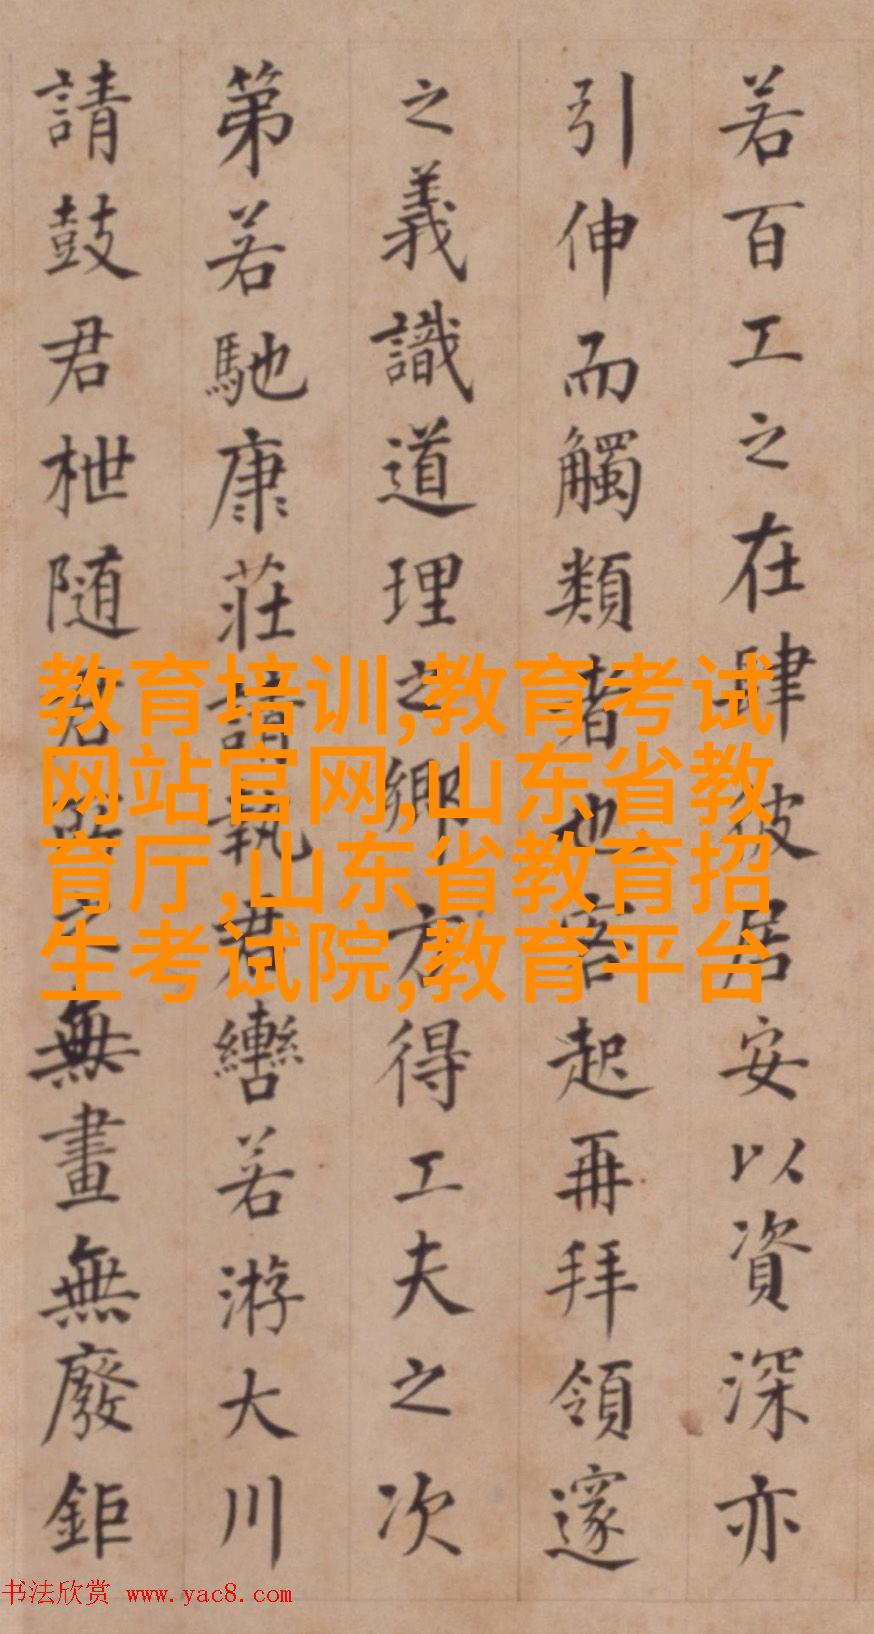 若百工之在肆彼居安以資深亦
引伸而觸類者也客起再拜領邃
之義識道理之鄉方得工夫之次
第若馳康莊請執君轡若游大川
請鼓君枻随君之無畫無廢鉅
教育培训,教育考试
网站官网,山东省教
育厅,山东省教育招
生考试院,教育平台
书法欣赏 www.yac8.com